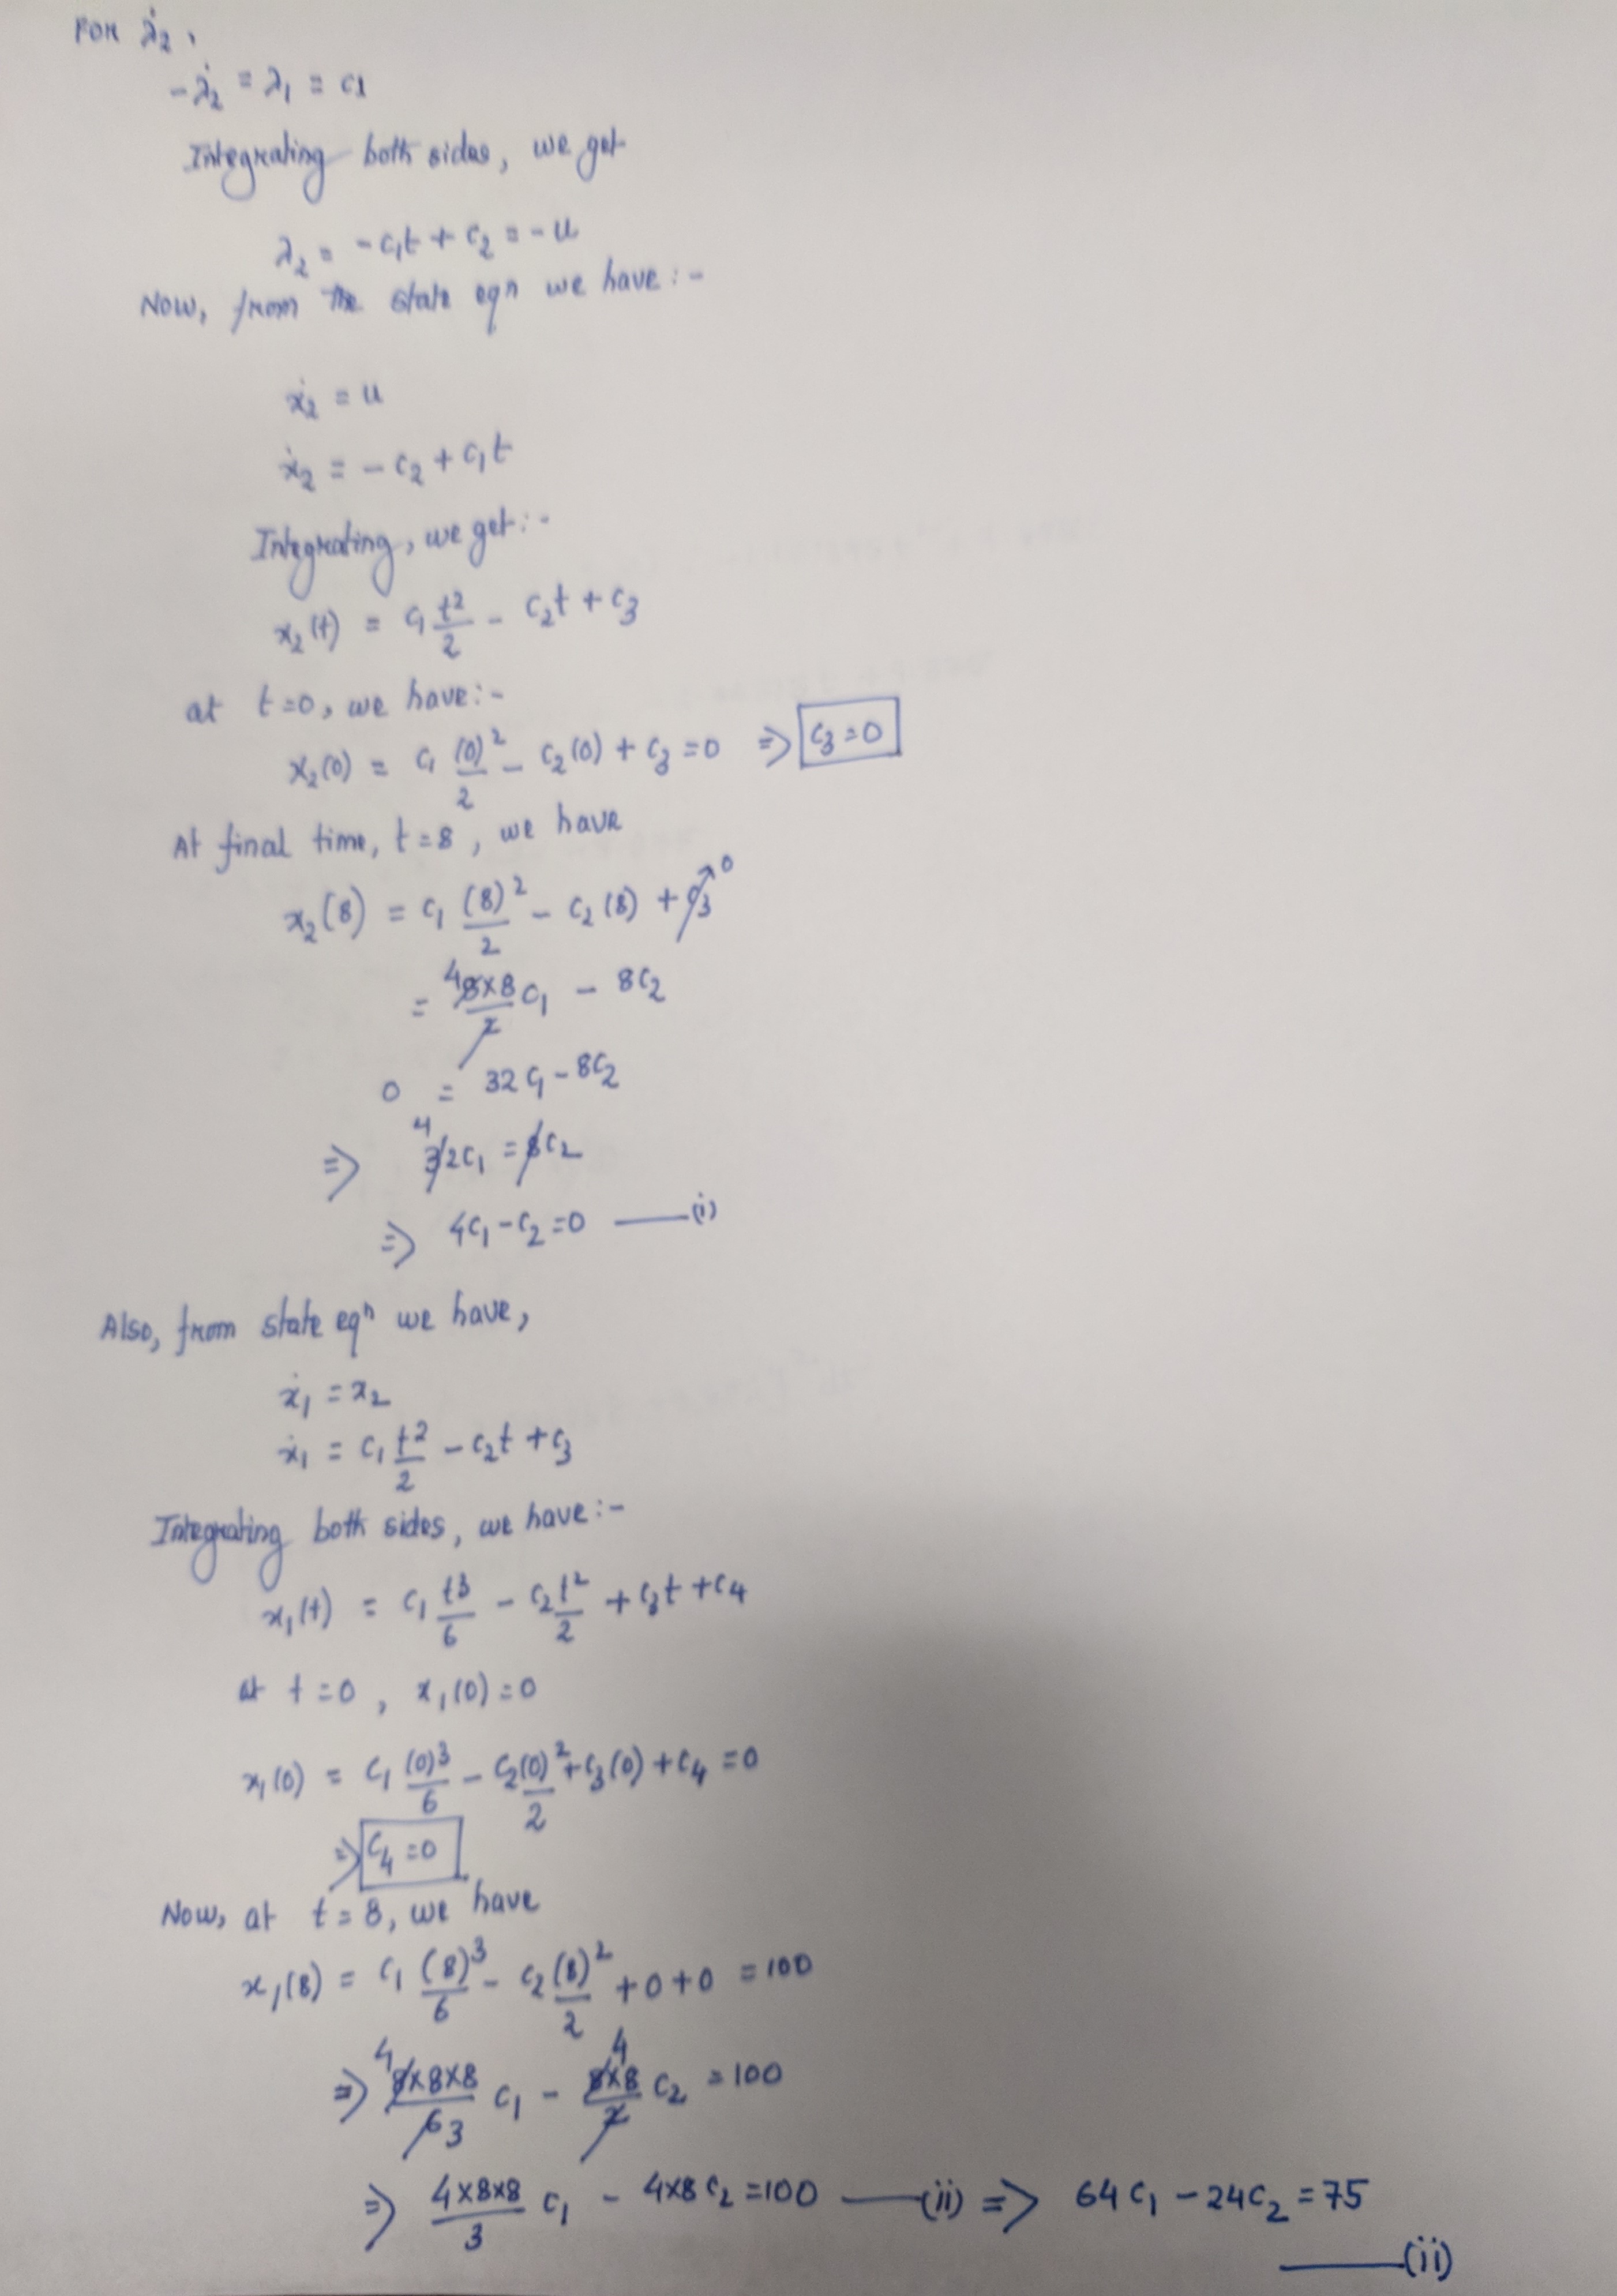 FOR λ̇₂,
-λ̇₂ = λ₁ = c1
Integrating both sides, we get
λ₂ = -c₁t + c₂ = -u
Now, from the state eqⁿ we have:-
ẋ₂ = u
ẋ₂ = -c₂ + c₁t
Integrating, we get:-
x₂(t) = c₁ t²/2 - c₂t + c₃
at t=0, we have:-
x₂(0) = c₁ (0)²/2 - c₂(0) + c₃ = 0 ⇒ c₃ = 0
At final time, t=8, we have
x₂(8) = c₁ (8)²/2 - c₂(8) + c₃ 0
= 4 8×8/2 c₁ - 8c₂
0 = 32c₁ - 8c₂
⇒ 4 32c₁ = 8c₂
⇒ 4c₁ - c₂ = 0 —(i)
Also, from state eqⁿ we have,
ẋ₁ = x₂
ẋ₁ = c₁ t²/2 - c₂t + c₃
Integrating both sides, we have:-
x₁(t) = c₁ t³/6 - c₂ t²/2 + c₃t + c₄
at t=0, x₁(0)=0
x₁(0) = c₁ (0)³/6 - c₂(0)²/2 + c₃(0) + c₄ = 0
⇒ c₄ = 0
Now, at t=8, we have
x₁(8) = c₁ (8)³/6 - c₂ (8)²/2 + 0 + 0 = 100
⇒ 4 8×8×8/6 3 c₁ - 4 8×8/2 c₂ = 100
⇒ 4×8×8/3 c₁ - 4×8 c₂ = 100 —(ii) ⇒ 64c₁ - 24c₂ = 75
—(ii)